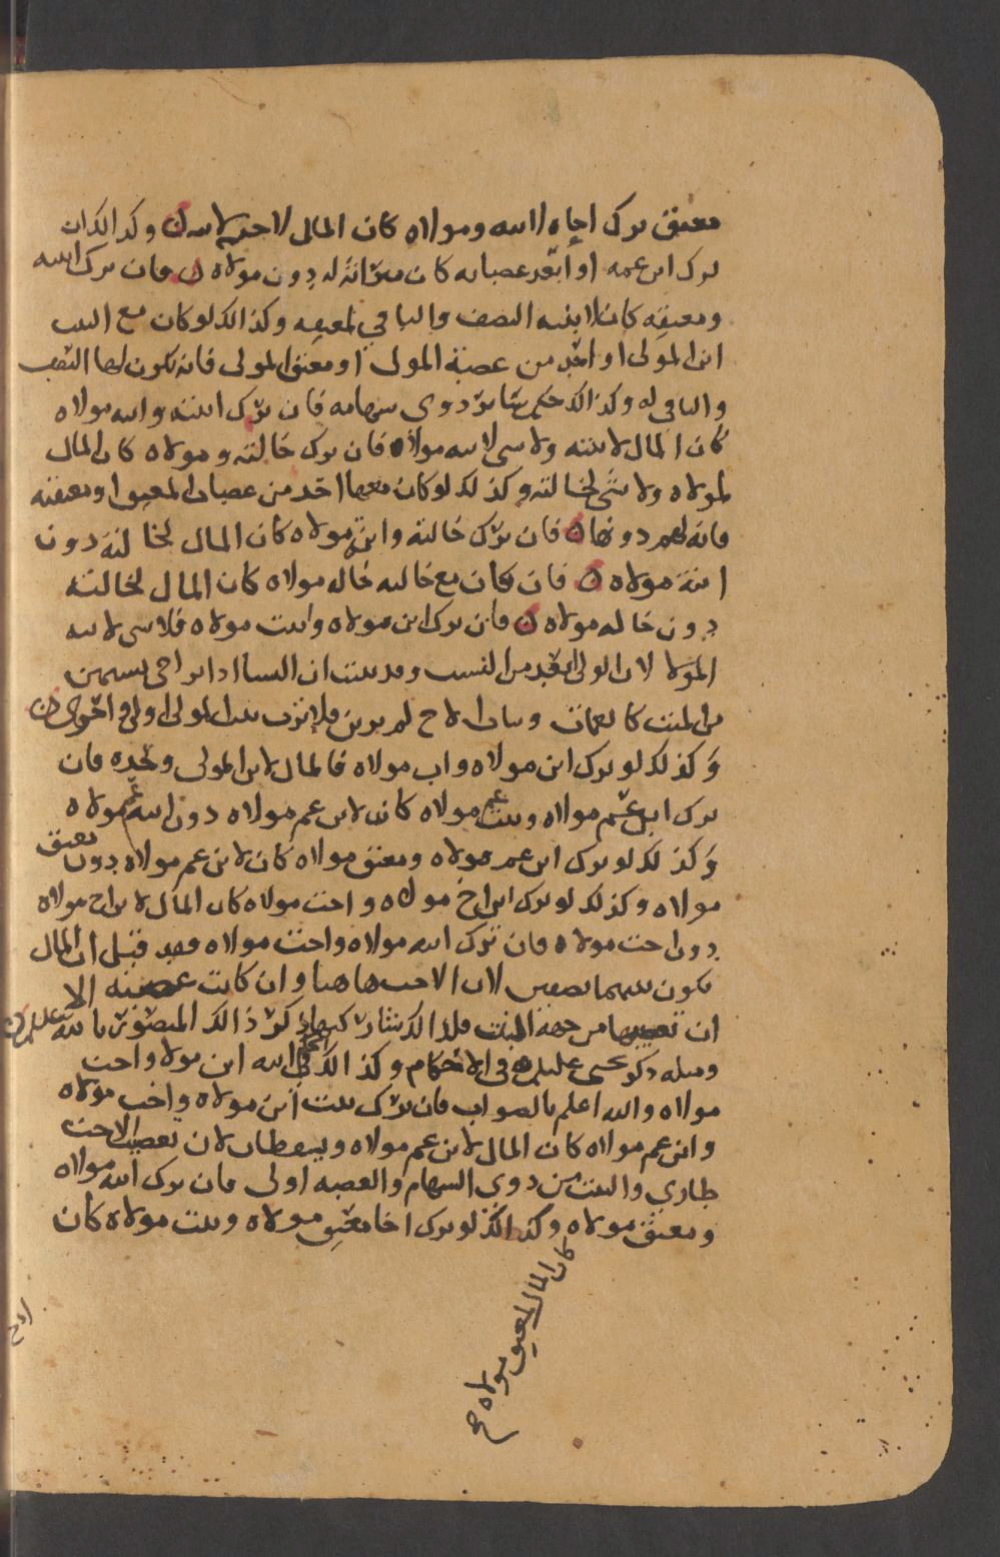 معتق ترك اخاه لابيه ومولاه كان المال لاخيه لابيه ن وكذالك ان
ترك ابن عمه او ابعد عصباته كان ميراثه له دون مولاه ن فان ترك ابنته
ومعتقه كان لابنته النصف والباقي لمعتقه وكذالك لو كان مع البنت
ابن المولى او احد من عصبة المولى او معتق المولى فانه يكون لها النصف
والباقي له وكذالك حكم سائر ذوي سهامه فان ترك ابنته وابنه مولاه
كان المال لابنته ولا شي لابنه مولاه فان ترك خالته ومولاه كان المال
لمولاه ولا شي لخالته وكذلك لو كان معها احد من عصبات المعتق او معتقه
فانه لهم دونها ن فان ترك خالته وابنة مولاه كان المال لخالته دون
ابنة مولاه ن فان كان مع خالته خاله مولاه كان المال لخالته
دون خاله مولاه ن فان ترك ابن مولاه وابنت مولاه فلا شي لابنه
المولا لان الولى ابعد من النسب وقد بينت ان النسا اذا تراخى نسبهن
من الميت كالعمات وبنات الاخ لم يرثن فلان لا يرث بنت المولى اولى واحرى ن
وكذلك لو ترك ابن مولاه واب مولاه فالمال لابن المولى وحده فان
ترك ابن عم مولاه وبنت عم مولاه كان لابن عم مولاه دون ابنه عم مولاه
وكذلك لو ترك ابن عم مولاه ومعتق مولاه كان لابن عم مولاه دون معتق
مولاه وكذلك لو ترك ابن اخ مولاه واخت مولاه كان المال لابن اخ مولاه
دون اخت مولاه فان ترك ابنه مولاه واخت مولاه فقد قيل ان المال
يكون بينهما نصفين لان الاخت هاهنا وان كانت عصبته الا
ان تعصيبها من جهة البنت فلذالك شاركتها ذكر ذالك المنصور بالله عليلم
ومثله ذكر يحيى عليلم في الاحكام وكذالك في ابنه ابن مولا واخت
مولاه والله اعلم بالصواب فان ترك بنت ابن مولاه واخت مولاه
وابن عم مولاه كان المال لابن عم مولاه ويسقطان لان تعصيب الاخت
طاري والبنت من ذوي السهام والعصبه اولى فان ترك ابنه مولاه
ومعتق مولاه وكذالك لو ترك اخا معتق مولاه وبنت مولاه كان
كان المال لمعتق مولاه